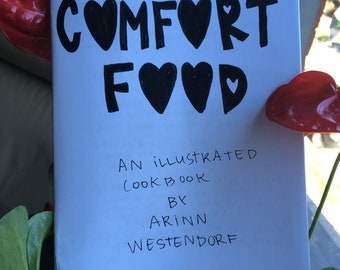 COMFORT
FOOD
AN ILLUSTRATED
COOKBOOK
BY
ARINN
WESTENDORF